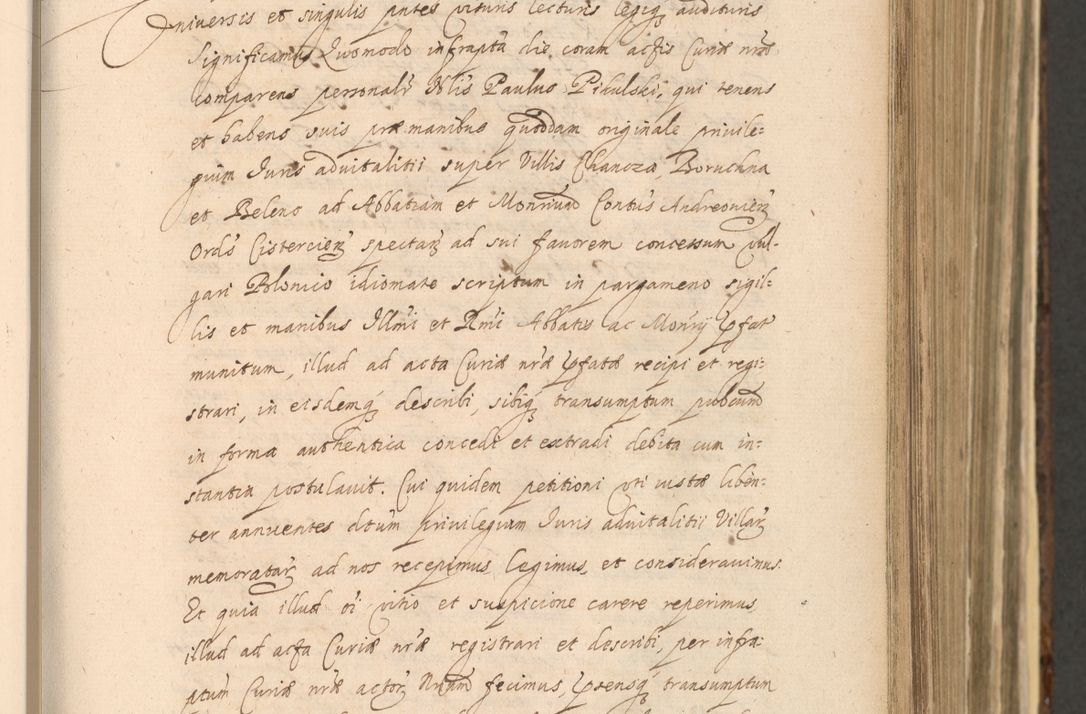 Vniuersis et singulis pntes visuris lecturis legiq audituris
Significamus Quomodo infrapta die coram actis Curiæ nræ
comparens personalr Nlis Paulus Pikulski, qui tenens
et habens suis præ manibus quoddam originale privile:
gium Iuris aduitalitii super Villis Chancza, Boruchna
et Beleno ad Abbatiam et Monrium Contus Andreouien
Ordis Cistercien spectan ad sui fauorem concessum vul-
gari Polonico idiomate scriptum in pargameno sigil:
lis et manibus Illmi et Rmi Abbatis ac Monrij pfat
munitum, illud ad acta Curiæ nræ pfatæ recipi et regi:
strari, in eisdemq describi, sibiq transumptum pubcum
in forma authentica concedi et extradi debita cum in:
stantia postulauit. Cui quidem petitioni vti iustæ liben:
ter annuentes dtum privilegium Iuris aduitalitii Villar
memoratar ad nos recepimus, legimus, et considerauimus.
Et quia illud oi vitio et suspicione carere reperimus,
illud ad acta Curiæ nræ registrari et describi, per infra:
ptum Curiæ nræ actor Nrium fecimus, psensq transumptum